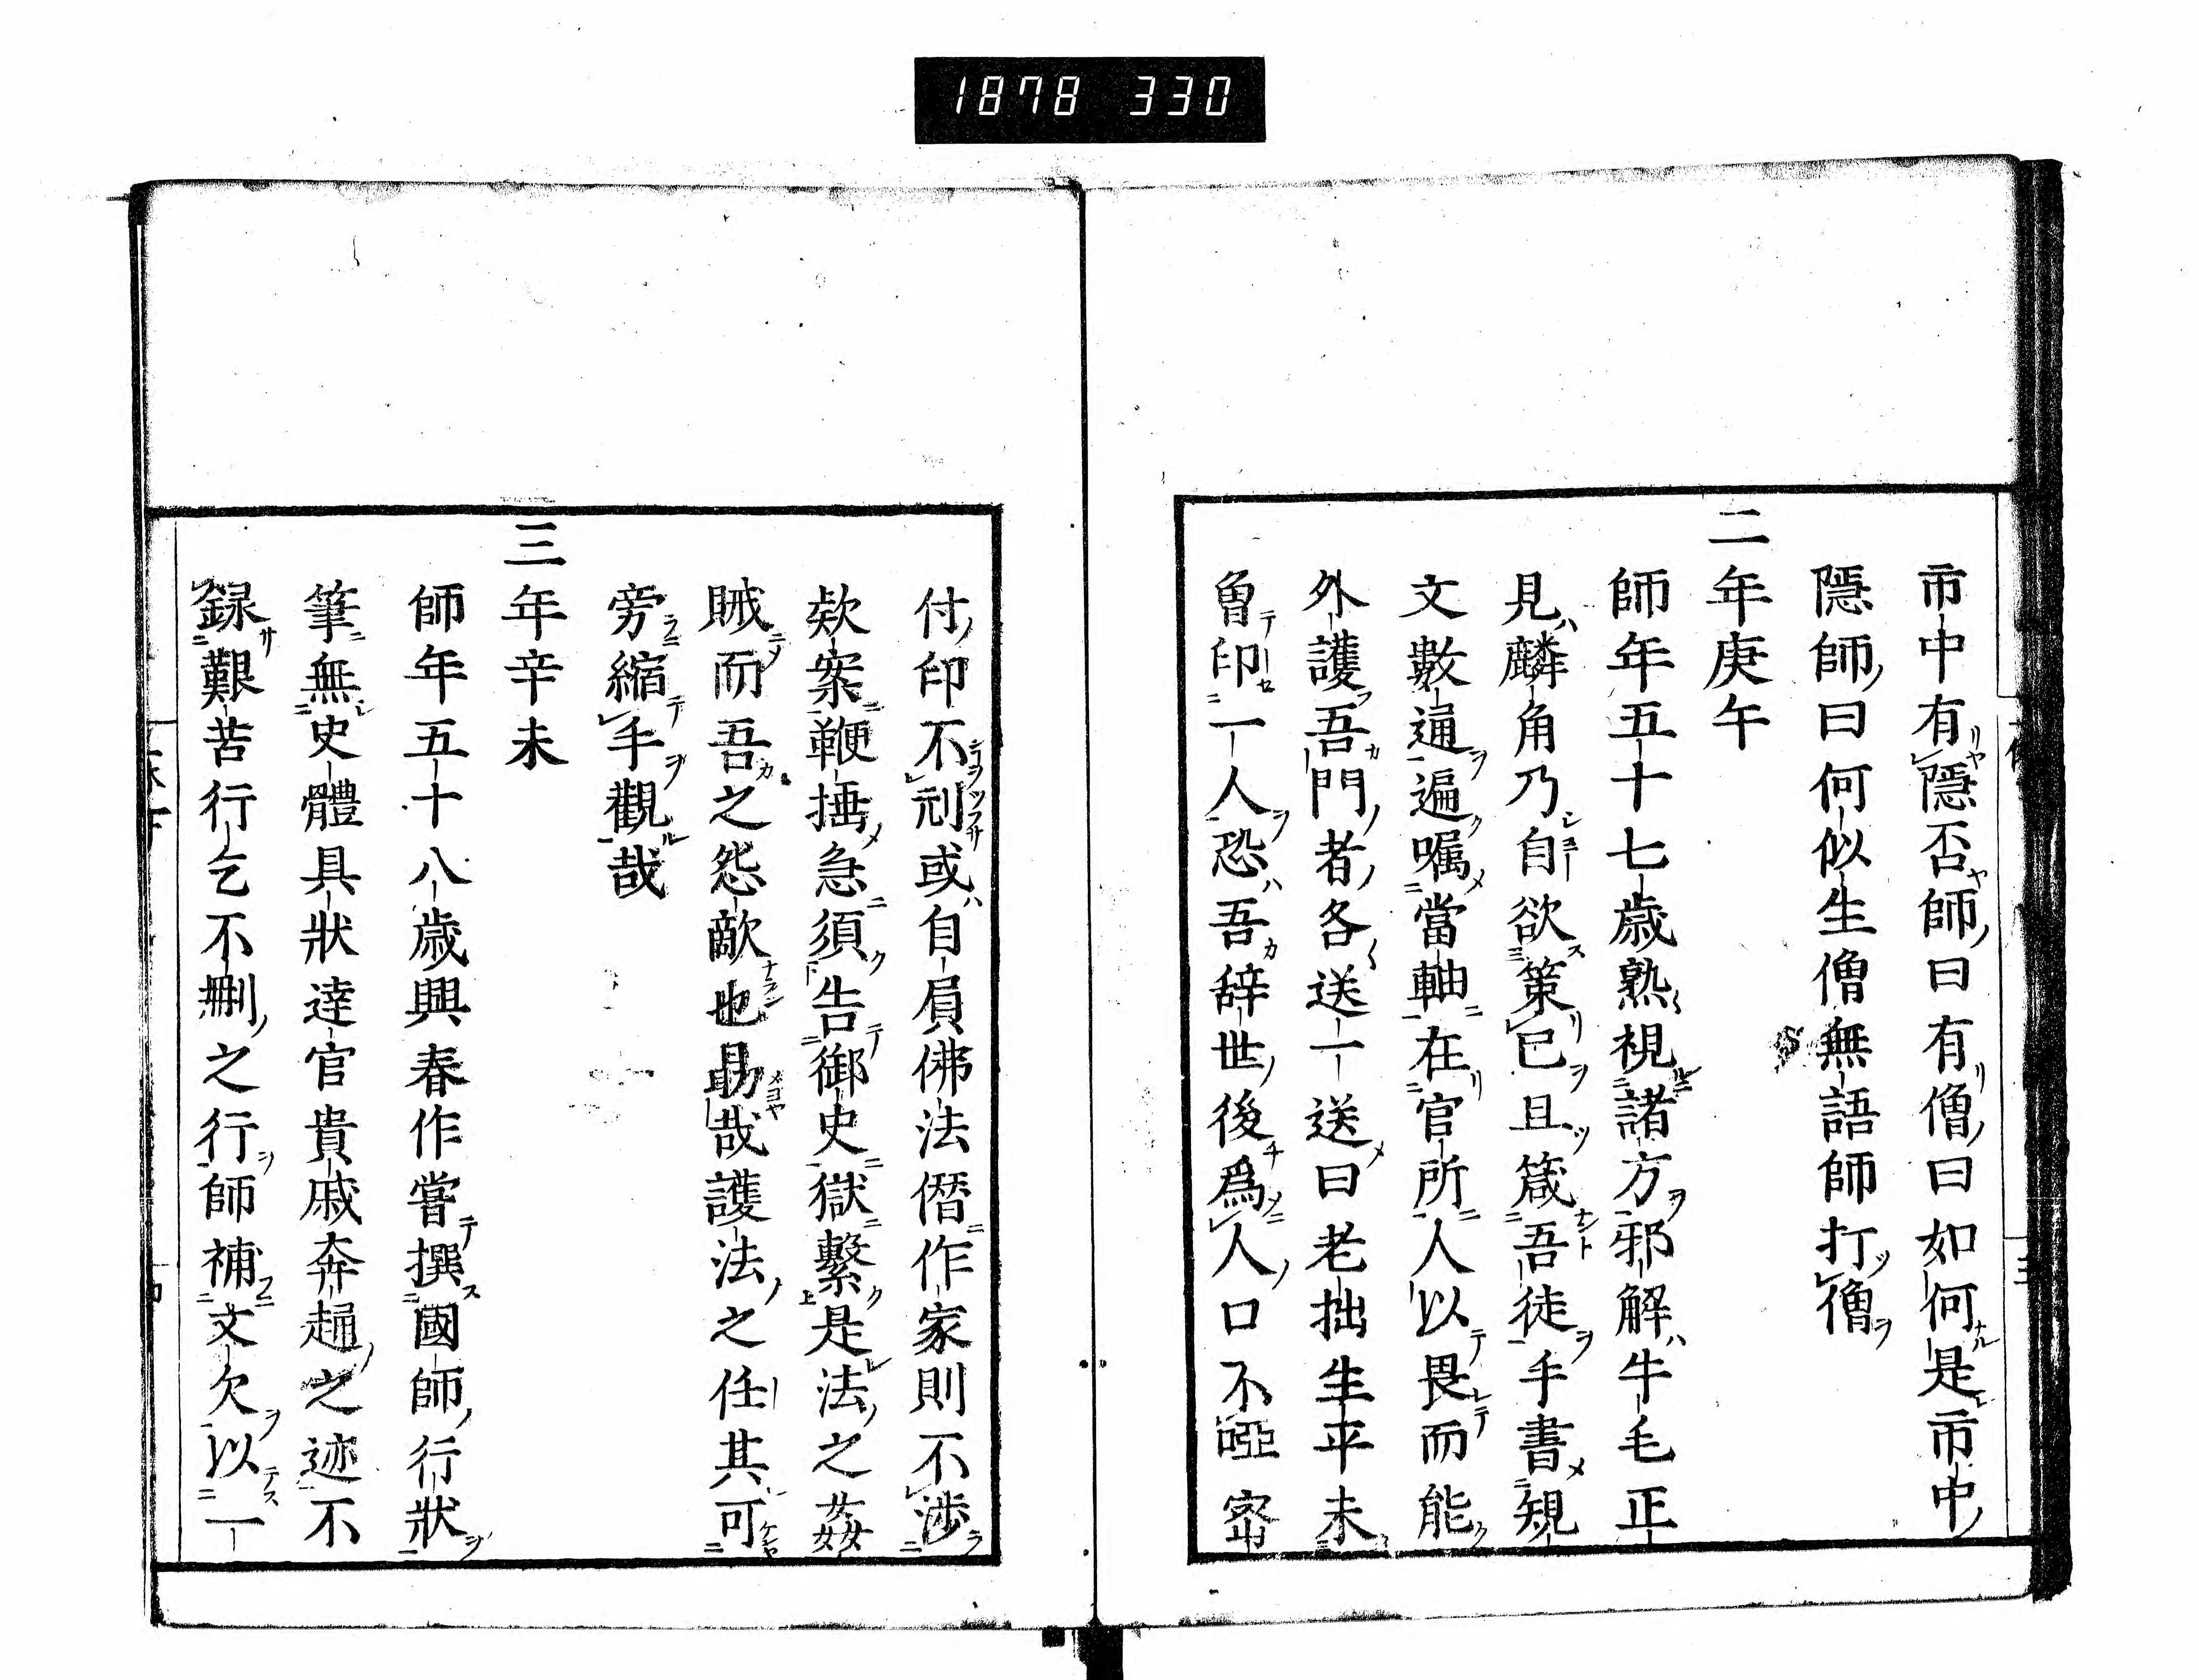 1878 330
市中有隱否師曰有僧曰如何是市中
隱師曰何似生僧無語師打僧
二年庚午
師年五十七歲熟視諸方邪解牛毛正
見麟角乃自欲策已且箴吾徒手書規
文數通遍囑當軸在官所人以畏而能
外護吾門者各送一送曰老拙生平未
曾印一人恐吾辞世後爲人口不啞密
付印不刓或自屓佛法僭作家則不渉
欸案鞭捶急須告御史獄繫是法之姦
賊而吾之怨敵也勗哉護法之任其可
旁縮手觀哉
三年辛未
師年五十八歲興春作嘗撰國師行狀
筆無史體具狀達官貴戚奔趨之迹不
録艱苦行乞不刪之行師補文欠以一